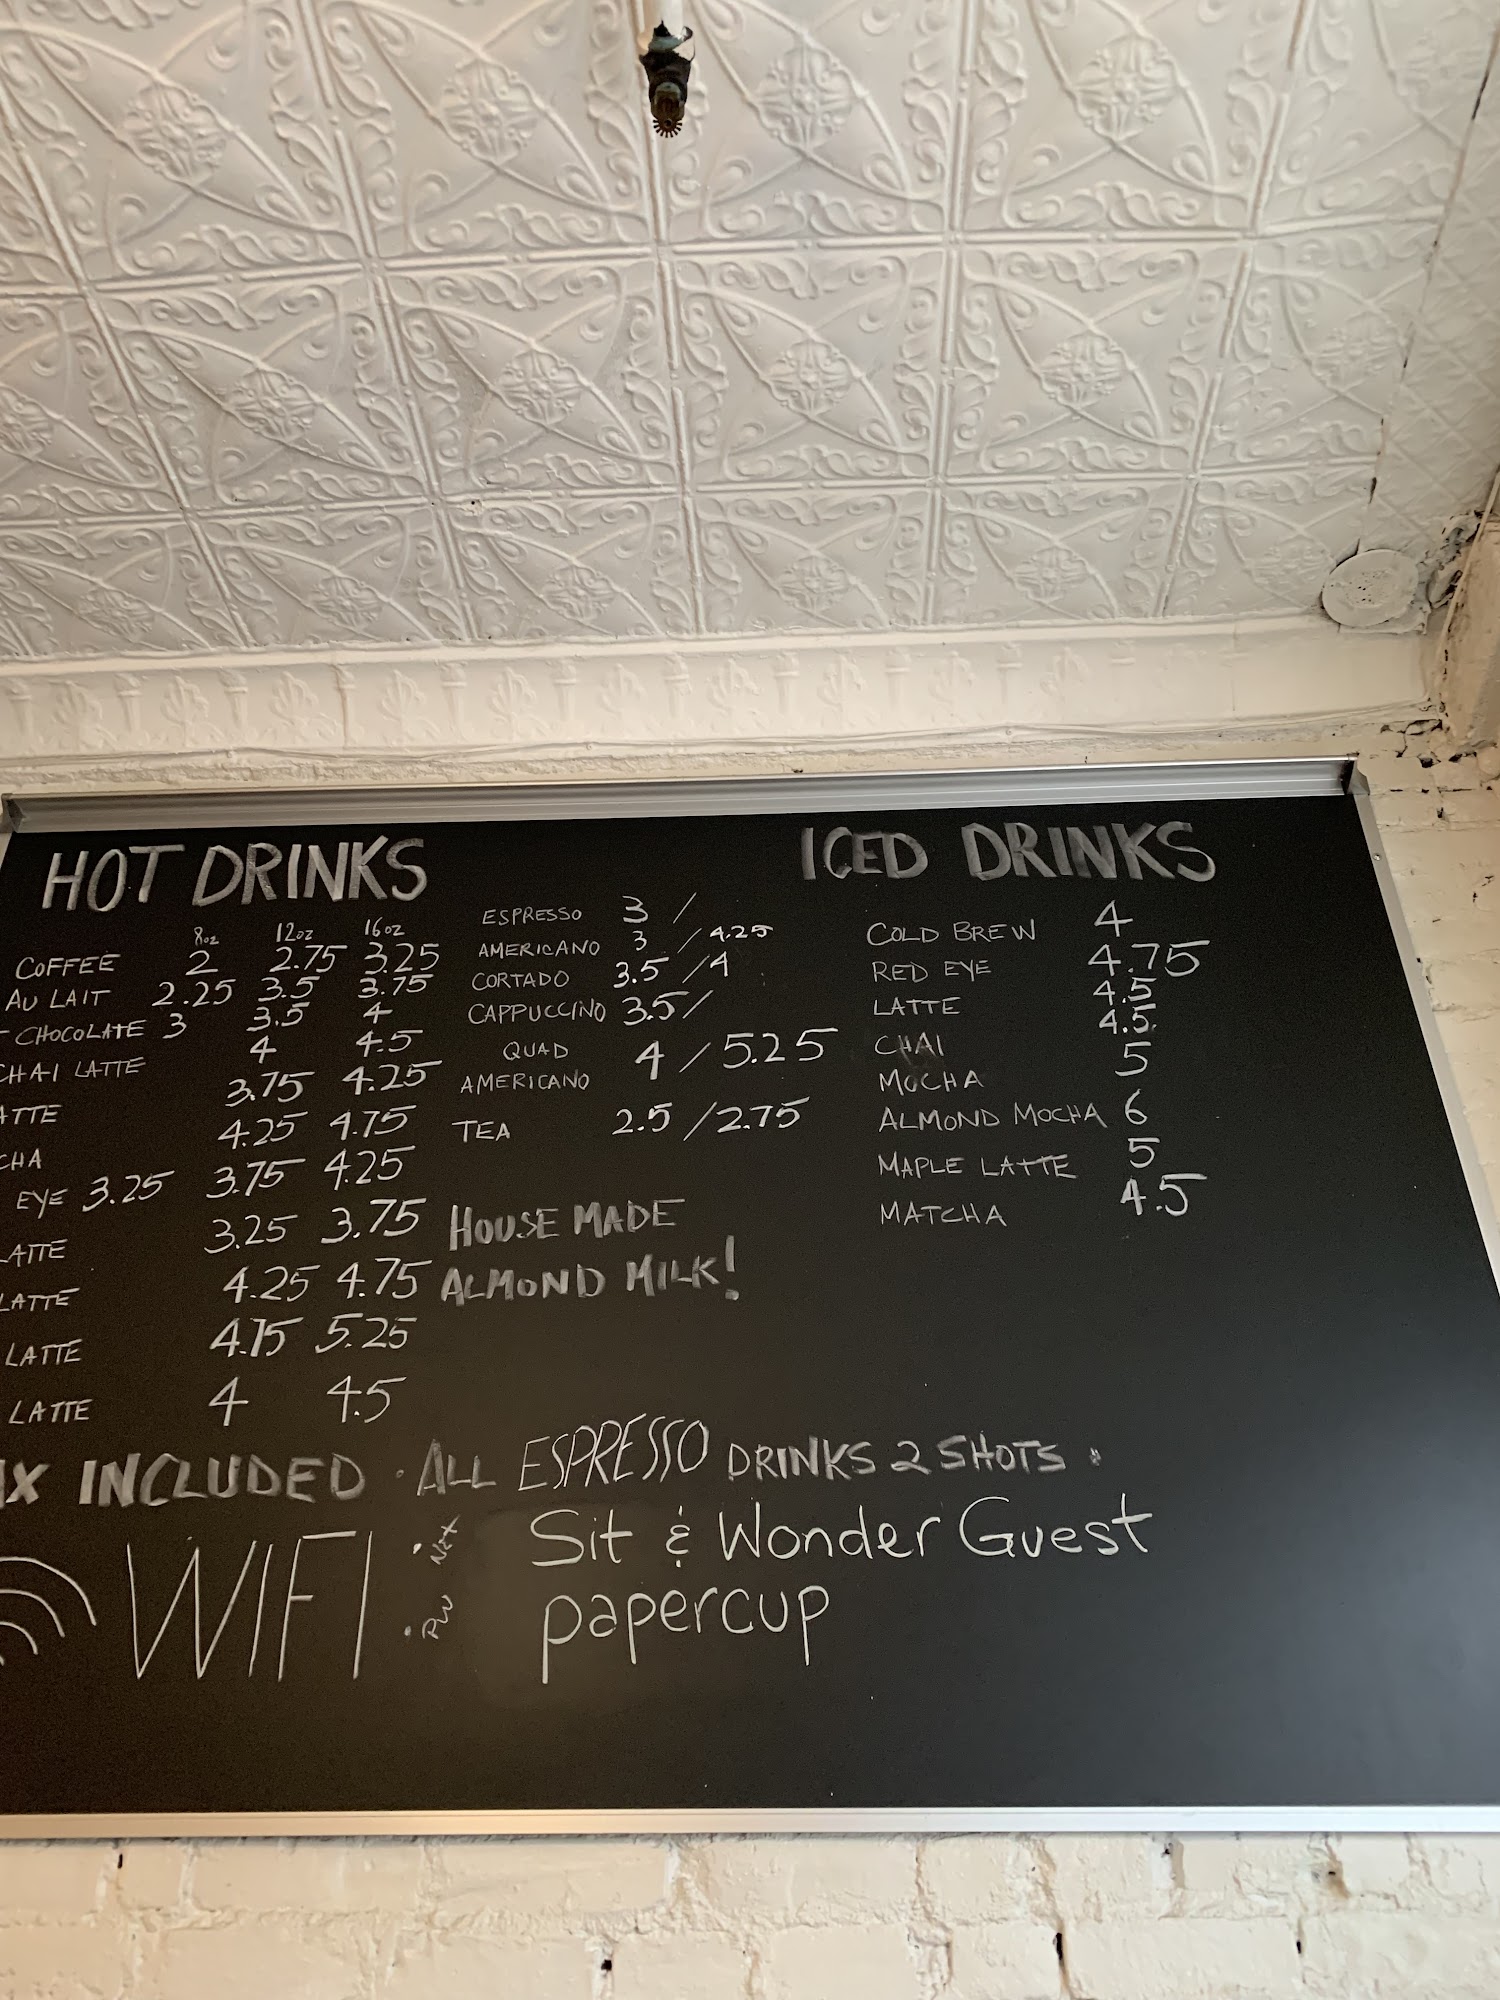 HOT DRINKS
8oz 12oz 16oz
COFFEE 2 2.75 3.25
AU LAIT 2.25 3.5 3.75
CHOCOLATE 3 3.5 4
CHAI LATTE 4 4.5
ATTE 3.75 4.25
CHA 4.25 4.75
EYE 3.25 3.75 4.25
LATTE 3.25 3.75
LATTE 4.25 4.75
LATTE 4.75 5.25
LATTE 4 4.5
ESPRESSO 3 /
AMERICANO 3 / 4.25
CORTADO 3.5 / 4
CAPPUCCINO 3.5 /
QUAD
AMERICANO 4 / 5.25
TEA 2.5 / 2.75
HOUSE MADE
ALMOND MILK!
ICED DRINKS
COLD BREW 4
RED EYE 4.75
LATTE 4.5
CHAI 4.5
MOCHA 5
ALMOND MOCHA 6
MAPLE LATTE 5
MATCHA 4.5
AX INCLUDED · ALL ESPRESSO DRINKS 2 SHOTS ·
WIFI · Net Sit & Wonder Guest
· PW papercup